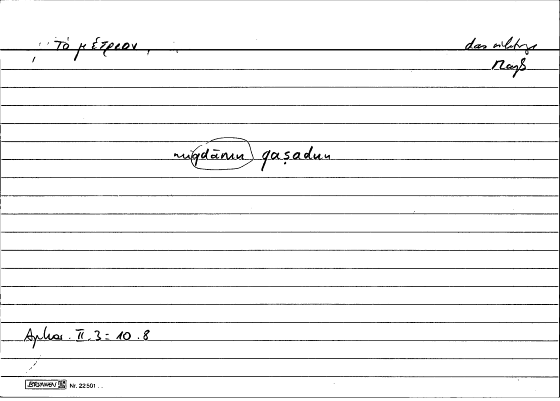 τὸ μέτρον,
das richtige
Maß
miqdārun qaṣadun
Aphor. II.3 = 10.8
BRUNNEN Nr. 22501